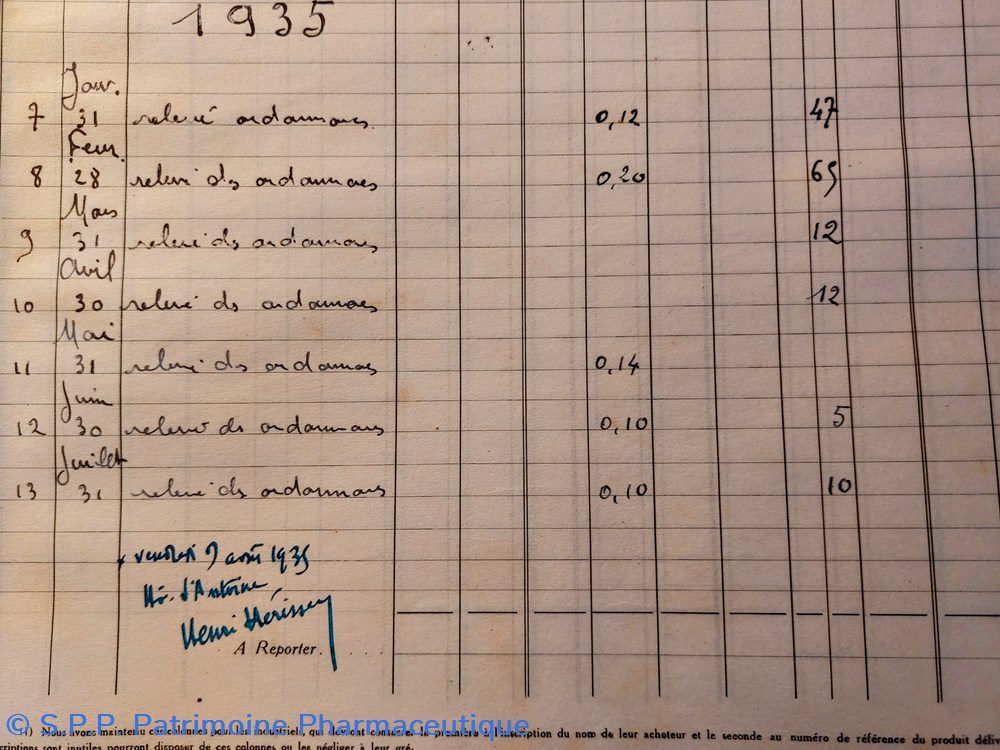 1935
Janv.
7 31 relevé ordonnances 0,12 47
Fevr.
8 28 relevé des ordonnances 0,20 65
Mars
9 31 relevé des ordonnances 12
Avril
10 30 relevé des ordonnances 12
Mai
11 31 relevé des ordonnances 0,14
Juin
12 30 relevé des ordonnances 0,10 5
Juillet
13 31 relevé des ordonnances 0,10 10
vendredi 9 août 1935
d'Antoine
Henri Hérissey
A Reporter. . . . .
© S.P.P. Patrimoine Pharmaceutique
(1) Nous avons maintenu ces colonnes pour les industriels, qui doivent consacrer la première à l'inscription du nom de leur acheteur et le seconde au numéro de référence du produit déliv
criptions sont inutiles pourront disposer de ces colonnes ou les négliger à leur gré.